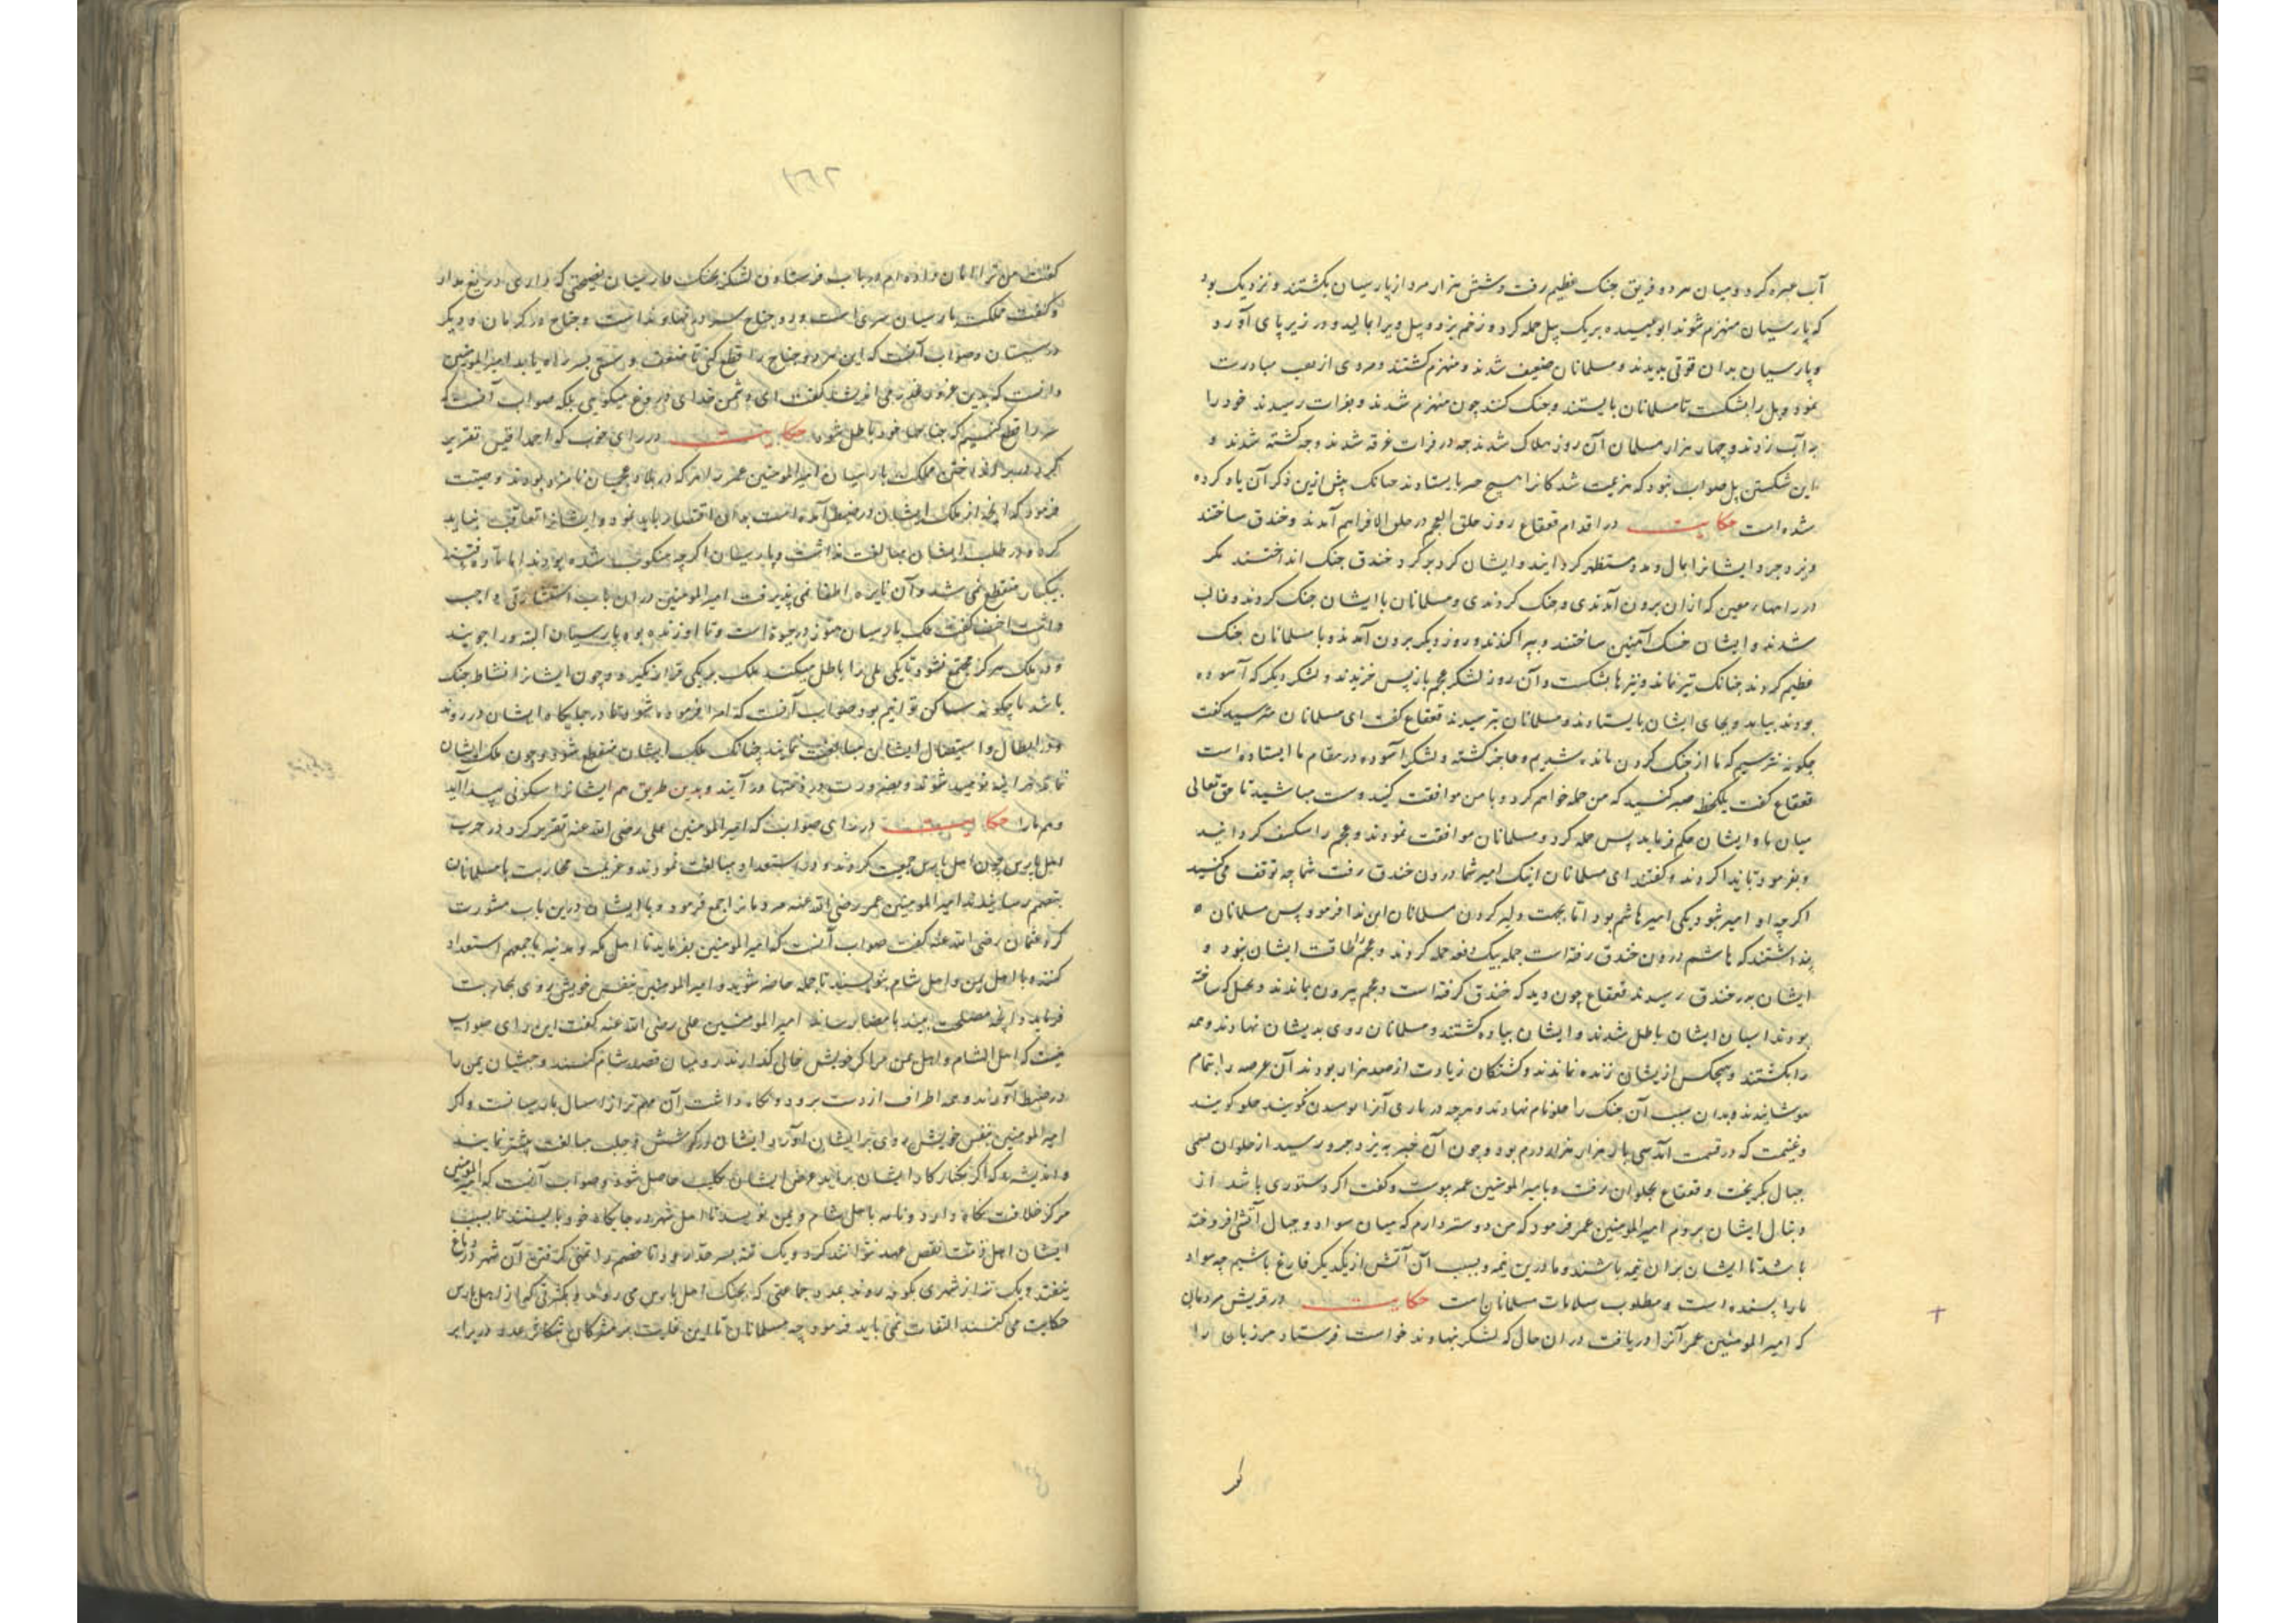 آب عبره کرد و میان هر دو فریق جنک عظیم رفت و شش هزار مرد از پارسیان بکشتند و نزدیک بود
که پارسیان منهزم شوند ابوعبیده بر یک پیل حمله کرد و زخم بزد و پیل ویرا بمالید و در زیر پای آورد
و پارسیان بدان قوتی بدیدند و مسلمانان ضعیف شدند و منهزم کشتند و مردی از عرب مبادرت
نمود و پل را بشکست تا مسلمانان بایستند و جنک کنند چون منهزم شدند و بفرات رسیدند خود را
در آب زدند و چهار هزار مسلمان آن روز هلاک شدند چه در فرات غرقه شدند و چه کشته شدند و
این شکستن پل صواب نبود که هزیمت شدکانرا هیچ چیز بایستاند چنانک پیش ازین ذکر آن یاد کرده
شده است حکایت در اقدام قعقاع روز جلولا العجم در جلولا فراهم آمدند و خندق ساختند
و یزدجرد ایشانرا بمال و مدد مستظهر کردانید و ایشان کرد بر کرد خندق جنک انداختند مکر
در راهها معین که ازان برون آمدندی و جنک کردندی و مسلمانان با ایشان جنک کردند و غالب
شدند و ایشان خسک آهنین ساختند و بپراکندند و روز دیکر برون آمدند و با مسلمانان جنک
عظیم کردند چنانک تیر نماند و نیزها بشکست و آن روز لشکر عجم باز پس خزیدند و لشکر دیکر که آسوده
بودند بیامد و بجای ایشان بایستادند و مسلمانان بترسیدند قعقاع کفت ای مسلمانان مترسید کفت
چکونه نترسیم که ما از جنک کردن مانده شدیم و عاجز کشته و لشکر آسوده در مقام ما ایستاده است
قعقاع کفت یکلحظه صبر کنید که من حمله خواهم کرد و با من موافقت کنید و ست مباشید تا حق تعالی
میان ما و ایشان حکم فرماید پس حمله کرد و مسلمانان موافقت نمودند و عجم را منکسف کردانید
و بفرمود تا ندا کردند و کفتند ای مسلمانان اینک امیر شما درون خندق رفت شما چه توقف می‌کنید
اکرچه او امیر نبود بلکی امیر هاشم بود اما بجهت دلیر کردن مسلمانان این ندا فرمود پس مسلمانان
پنداشتند که هاشم درون خندق رفته است جمله بیک دفعه حمله کردند و عجم را طاقت ایشان نبود و
ایشان بدر خندق رسیدند قعقاع چون دید که خندق کرفته است و عجم بیرون ماندند و بخسک که ساخته
بودند اسپان ایشان باطل شدند و ایشان پیاده کشتند و مسلمانان روی بدیشان نهادند و همه
را بکشتند و هیچکس ازیشان زنده نماندند و کشتکان زیادت از صد هزار بودند آن عرصه را بتمام
بپوشانیدند و بدان سبب آن جنک را جلولا نام نهادند و هرچه در تازی آنرا پوسیدن کویند جلو کویند
و غنیمت که در قسمت آمد سی بار هزار هزار درم بود و چون آن خبر به یزدجرد رسید از حلوان سوی
جبال بکریخت و قعقاع بحلوان رفت و بامیرالمومنین عمر نبوشت و کفت اکر دستوری باشد از
دنبال ایشان بروم امیرالمومنین عمر فرمود که من دوستر دارم که میان سواد و جبال آتشی افروخته
باشد تا ایشان بران نیمه باشند و ما درین نیمه و بسبب آن آتش از یکدیکر فارغ باشیم چه سواد
ما را پسنده است و مطلوب سلامات مسلمانان است حکایت در قریش مردمان
که امیرالمومنین عمر آنرا دریافت دران حال که لشکر نهاوند خواست فرستاد مرزبان را
کفت من ترا امان داده ام در باب فرستادن لشکر بجنک پارسیان نصیحتی که داری دریغ مدار
و کفت مملکت پارسیان سری است و دو جناح سر در نهاوند است و جناح در کرمان و دیکر
در سیستان و صواب آنست که این هر دو جناح را قطع کنی تا ضعف و سستی بسر راه یابد امیرالمومنین
دانست که بدین غرور قدر می اندیشد کفت ای دشمن خدای دروغ میکویی بلکه صواب آنست که
سر را قطع کنیم که جناحها خود باطل شود حکایت در رای خوب که احنف قیس تقریر
کرد در بر انداختن ملک پارسیان امیرالمومنین عمر را مر که در بلاد عجمیان نامزد بودند وصیت
فرمود که آنچه از ملک ایشان در ضبط آمده است بدان اقتصار باید نمود و ایشانرا تعاقب نباید
کرد و در طلب ایشان مبالغت نداشت و پارسیان اکرچه منکوب شده بودند اما ماده فتنه
بیکبار منقطع نمی‌شد و آن نایره اطفا نمی‌پذیرفت امیرالمومنین دران باب استشارتی واجب
داشت احنف کفت ملک پارسیان هنوز در حیوة است و تا او زنده بود پارسیان البته ورا جویند
و دو ملک هرکز مجتمع نشود تا یکی یکی را باطل میکند ملک بر یکی قرار نکیرد و چون ایشانرا نشاط جنک
باشد ما چکونه ساکن توانیم بود صواب آنست که امرا فرموده شود تا در جایکاه ایشان در روند
و در ابطال و استیصال ایشان مبالغت نمایند چنانک ملک ایشان منقطع شود و چون ملک ایشان
نماند مرایشان نومید شوند و بضرورت در ذمتها در آیند و بدین طریق هم ایشانرا سکونی پیدا آید
و هم مارا حکایت در رای صواب که امیرالمومنین علی رضی الله عنه تقریر کرد در حرب
اهل پارس چون اهل پارس جمعیت کردند و در استعداد مبالغت نمودند و عزیمت محاربت با مسلمانان
بتصمیم رسانیدند امیرالمومنین عمر رضی الله عنه مردمانرا جمع فرمود و با ایشان درین باب مشورت
کرد عثمان رضی الله عنه کفت صواب آنست که امیرالمومنین بفرماید تا اهل مکه و مدینه باجمعهم استعداد
کنند و با اهل یمن و اهل شام بنویسند تا جمله حاضر شوند و امیرالمومنین بنفس خویش روی بمحاربت
فرماید و آنچه مصلحت بیند بامضا رساند امیرالمومنین علی رضی الله عنه کفت این رای صواب
نیست که اهل الشام و اهل یمن مراکز خویش خالی کذارند رومیان قصد شام کنند و حبشیان یمن را
در ضبط آورند و همه اطراف از دست برود و نکاه داشت آن مهم‌تر از اسال پارسیانست و اکر
امیرالمومنین بنفس خویش روی بر ایشان آورد ایشان در کوشش و جلب مبالغت بیشتر نمایند
و اندیشند که اکر بکار کار ایشان برآید غرض ایشان بکلیت حاصل شود و صواب آنست که امیرالمومنین
مرکز خلافت نکاه دارد و نامه باهل شام و یمن نویسد تا اهل شهر در جایکاه خود بایستند تا بسبب
ایشان اهل ذمت نقص عهد نتوانند کرد و یک تنه بسر حد رود تا خصم را تمنی کرفتن آن شهر در دماغ
نیفتد و یک تنه از شهری بکوفه روند بمدد جماعتی که بجنک اهل پارس می‌روند و بکثرتی که از اهل پارس
حکایت می کنند التفات نمی باید فرمود چه مسلمانان تا این غایت بر مشرکان بتکاثر عدد در برابر